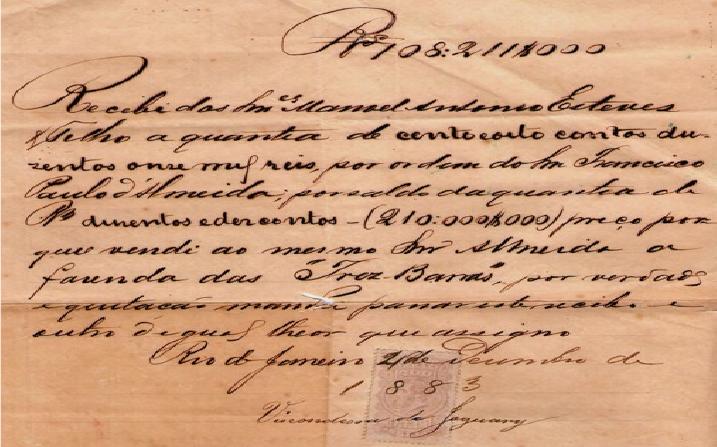 Rs 108:211$000
Recebi dos Snres Manoel Antonio Esteves
& Filho a quantia de cento e oito contos du-
zentos onze mil reis, por ordem do Snr Francisco
Paulo d'Almeida; por saldo da quantia de
Rs duzentos e dez contos - (210:000$000) preço por
que vendi ao mesmo Snr Almeida a
fazenda das "Trez Barras", por verdade
e quitação mandei passar este recibo e
outro de igual theor que assigno
Rio de Janeiro 2 de Dezembro de
1883
Viscondessa de Jaguary